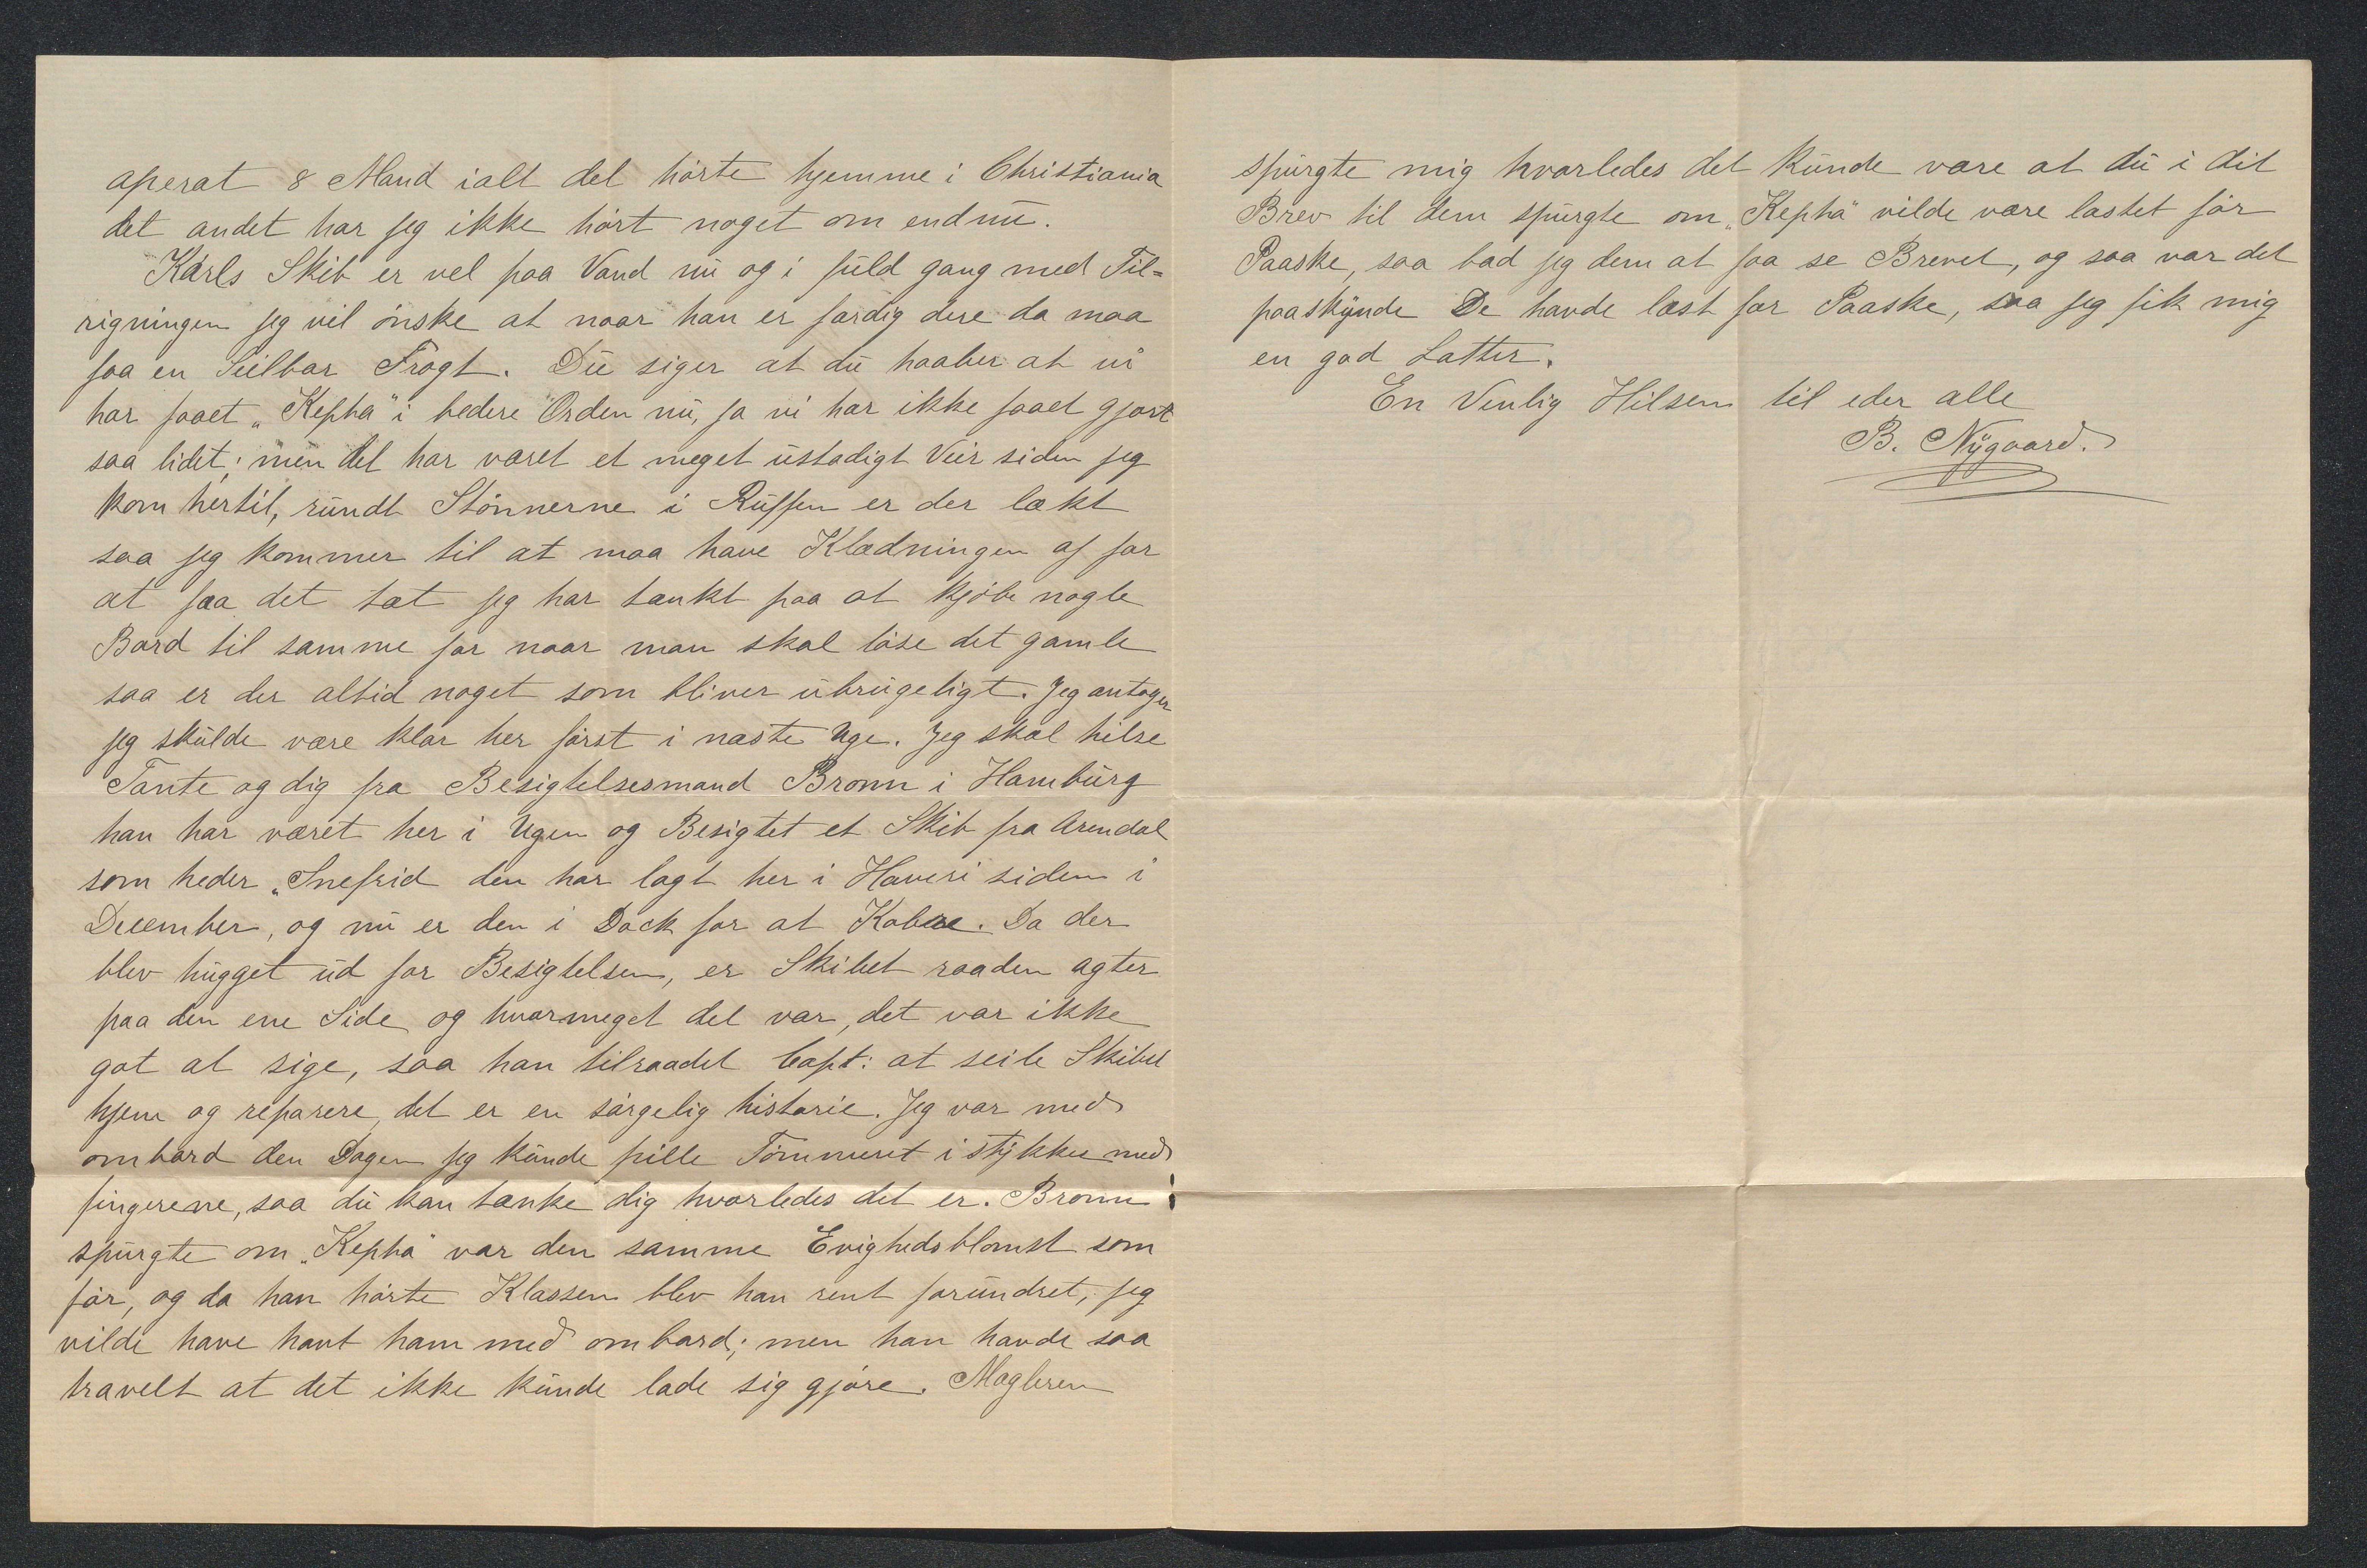 aperat 8 Mand ialt det hørte hjemme i Christiania
det andet har jeg ikke hørt noget om endnu.
Karls Skib er vel paa Vand nu og i fuld gang med Til-
rigningen jeg vil ønske at naar han er færdig dere da maa
faa en Seilbar Fragt. Du siger at du haaber at vi
har faaet „Kepha" i bedere Orden nu, ja vi har ikke faaet gjort
saa lidet; men det har været et meget ustadigt Veir siden jeg
kom hertil, rundt Stønnerne i Ruffen er der lækt
saa jeg kommer til at maa have Klædningen af for
at faa det tæt jeg har tænkt paa at kjøbe nogle
Bord til samme for naar man skal løse det gamle
saa er der altid noget som bliver ubrugeligt. Jeg antager
jeg skulde være klar her først i næste Uge. Jeg skal hilse
Tante og dig fra Besigtelsesmand Bronn i Hamburg
han har været her i Ugen og Besigtet et Skib fra Arendal
som heder „Snefrid den har lagt her i Haveri siden i
December, og nu er den i Dock for at Kobre. Da der
blev hugget ud for Besigtelsen, er Skibet raaden agter
paa den ene Side og hvormeget det var, det var ikke
got at sige, saa han tilraadet Capt: at seile Skibet
hjem og reparere, det er en sørgelig historie. Jeg var med
ombord den Dagen jeg kunde pille Tømmeret i stykker med
fingerene, saa du kan tænke dig hvorledes det er. Bronn
spurgte om „Kepha" var den samme Evighedsblomst som
før, og da han hørte Klassen blev han rent forundret, jeg
vilde have havt ham med ombord; men han havde saa
travelt at det ikke kunde lade sig gjøre. Mægleren
spurgte mig hvorledes det kunde være at du i dit
Brev til dem spurgte om „Kepha" vilde være lastet før
Paaske, saa bad jeg dem at faa se Brevet, og saa var det
paaskynde De havde læst for Paaske, saa jeg fik mig
en god Latter.
En Venlig Hilsen til eder alle
B. Nygaard.